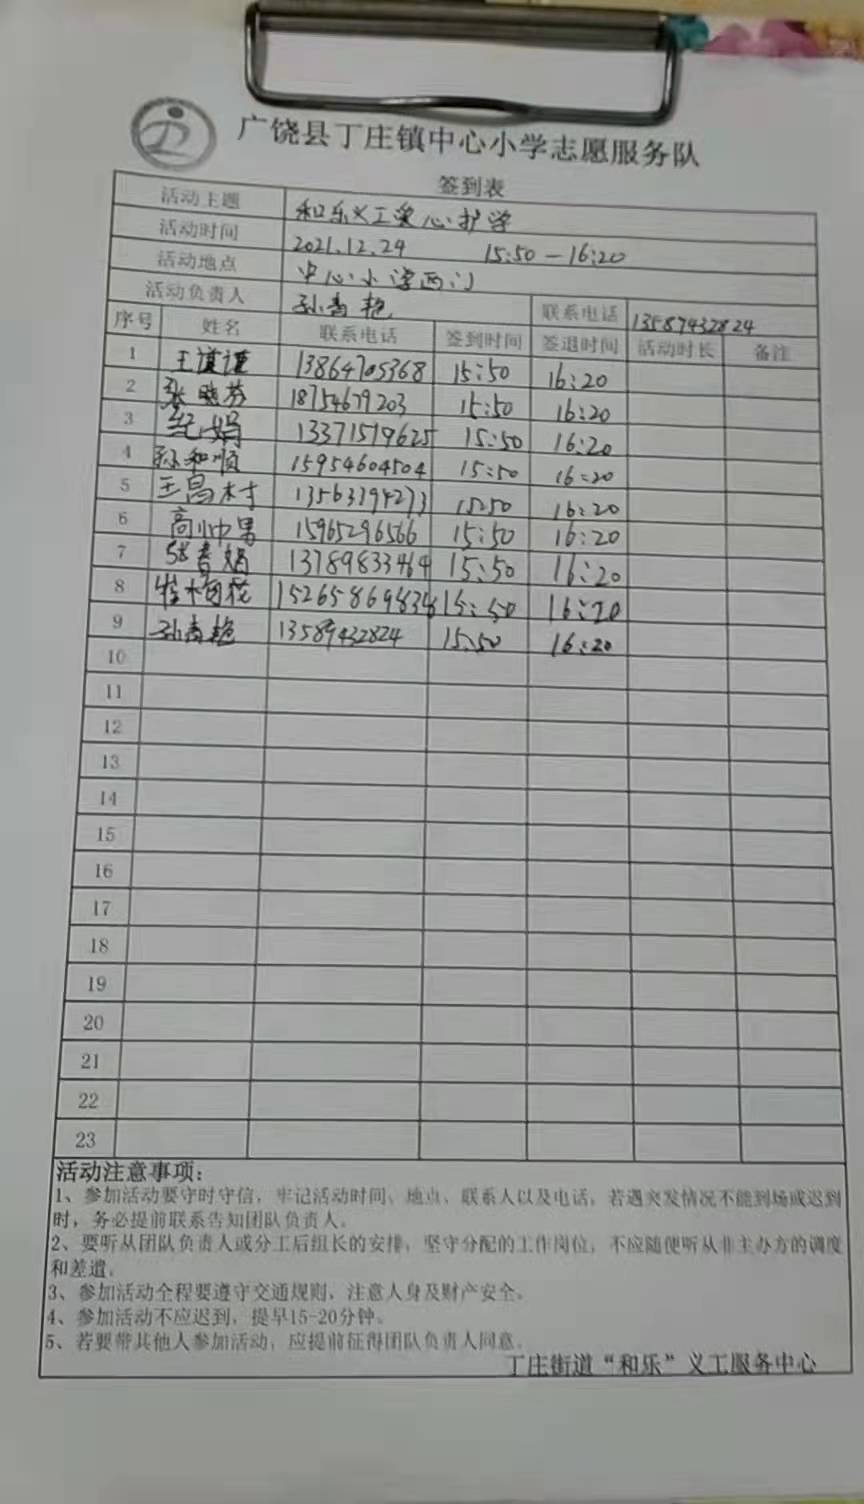 广饶县丁庄镇中心小学志愿服务队
签到表
活动主题 和乐义工爱心护学
活动时间 2021.12.29 15:50-16:20
活动地点 中心小学西门
活动负责人 孙春艳 联系电话 13589432824
序号 姓名 联系电话 签到时间 签退时间 活动时长 备注
1 王谨谨 13864705368 15:50 16:20
2 张晓芬 18754679203 15:50 16:20
3 纪娟 13371519625 15:50 16:20
4 孙和顺 15954604504 15:50 16:20
5 王昌村 13563194273 15:50 16:20
6 高帅男 15965296566 15:50 16:20
7 张春娟 13789833464 15:50 16:20
8 15265869834 15:50 16:20
9 孙春艳 13589432824 15:50 16:20
10
11
12
13
14
15
16
17
18
19
20
21
22
23
活动注意事项:
1、参加活动要守时守信,牢记活动时间、地点、联系人以及电话,若遇突发情况不能到场或迟到
时,务必提前联系告知团队负责人。
2、要听从团队负责人或分工后组长的安排,坚守分配的工作岗位,不应随便听从非主办方的调度
和差遣。
3、参加活动全程要遵守交通规则,注意人身及财产安全。
4、参加活动不应迟到,提早15-20分钟。
5、若要带其他人参加活动,应提前征得团队负责人同意。
丁庄街道“和乐”义工服务中心